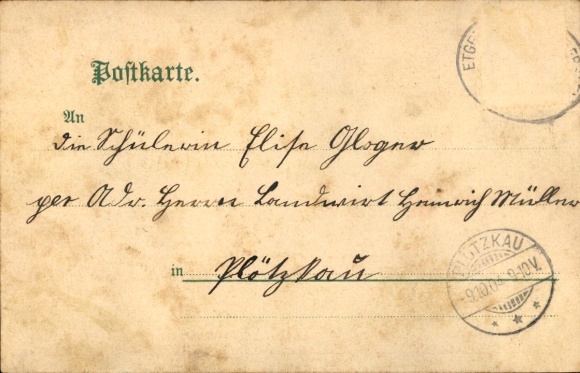 Postkarte.
An
die Schülerin Elise Gloger
per Adr. Herrn Landwirt Heinrich Müller
in Plötzkau
PLÖTZKAU
9.10.04 9-10V.